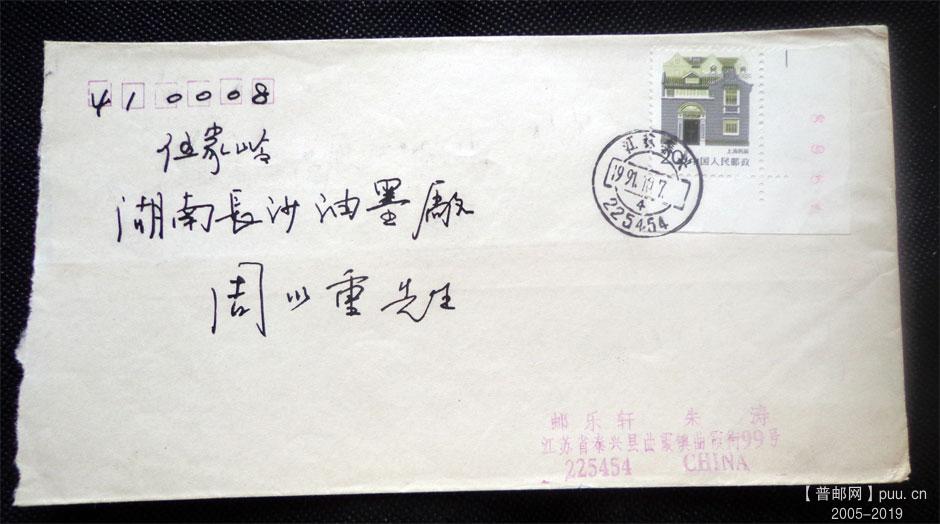 410008
伍家岭
湖南長沙油墨廠
周以重先生
上海民居
20 中国人民邮政
江苏泰兴
1991.10.7
4
225454
邮乐轩 朱涛
江苏省泰兴县曲霞镇曲霞街99号
225454 CHINA
【普邮网】puu.cn
2005-2019